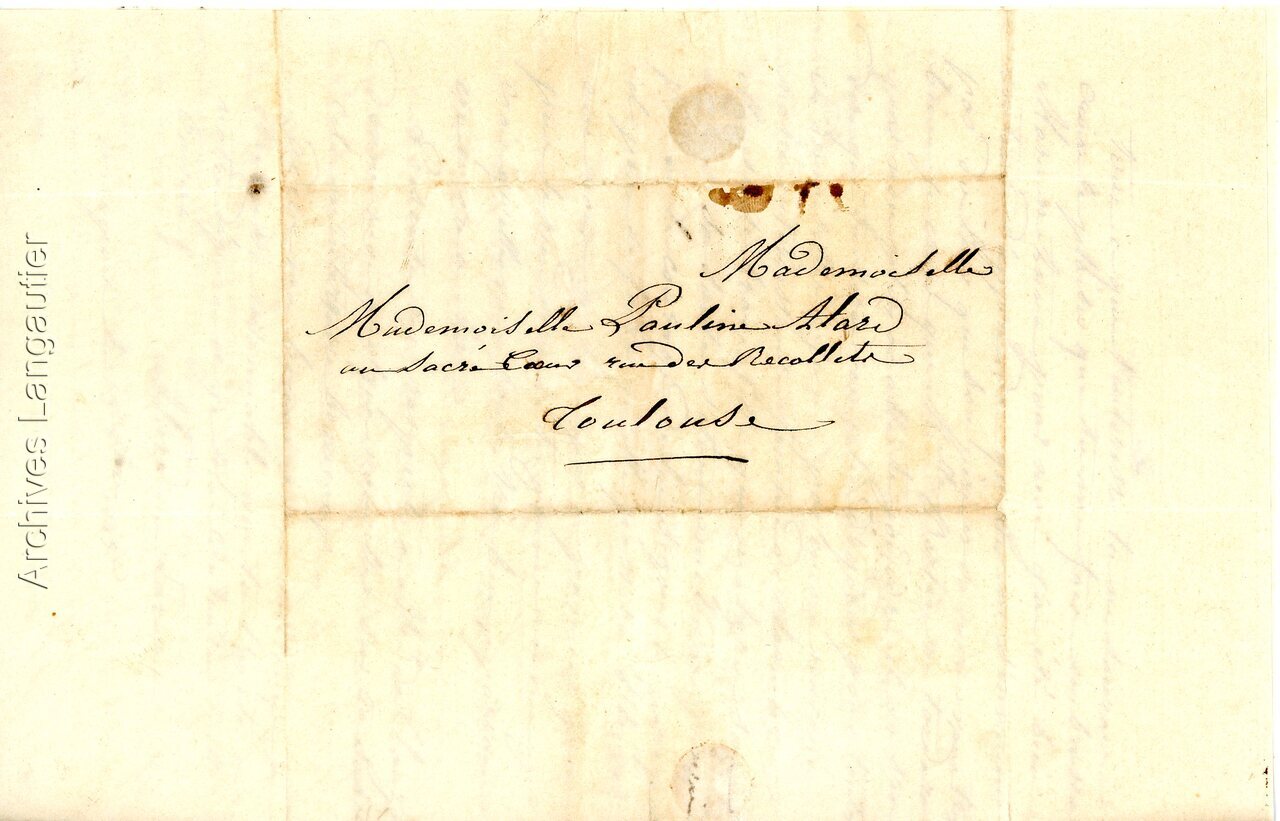 Mademoiselle
Mademoiselle Pauline Atard
au Sacré Coeur rue des Recollets
Toulouse
Archives Langautier